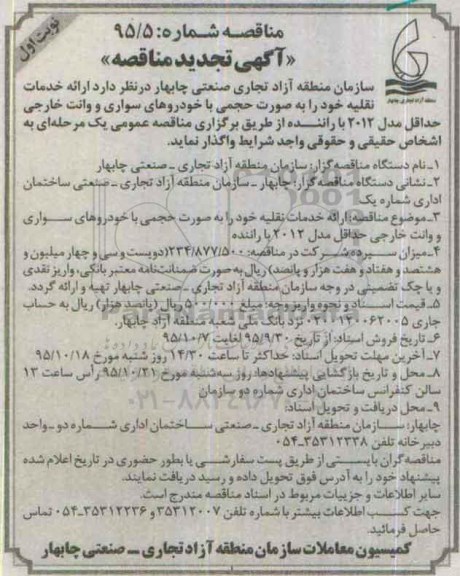 نوبت اول
مناقصه شماره: ۹۵/۵
«آگهی تجدید مناقصه»
منطقه آزاد تجاری صنعتی چابهار
سازمان منطقه آزاد تجاری صنعتی چابهار درنظر دارد ارائه خدمات
نقلیه خود را به صورت حجمی با خودروهای سواری و وانت خارجی
حداقل مدل ۲۰۱۲ با راننده از طریق برگزاری مناقصه عمومی یک مرحله‌ای به
اشخاص حقیقی و حقوقی واجد شرایط واگذار نماید.
۱ـ نام دستگاه مناقصه‌گزار: سازمان منطقه آزاد تجاری ـ صنعتی چابهار
۲ـ نشانی دستگاه مناقصه گزار: چابهار ـ سازمان منطقه آزاد تجاری ـ صنعتی ساختمان
اداری شماره یک
۳ـ موضوع مناقصه: ارائه خدمات نقلیه خود را به صورت حجمی با خودروهای سواری
و وانت خارجی حداقل مدل ۲۰۱۲ با راننده
۴ـ میزان سپرده شرکت در مناقصه: ۲۳۴/۸۷۷/۵۰۰(دویست و سی و چهار میلیون و
هشتصد و هفتاد و هفت هزار و پانصد) ریال به صورت ضمانت‌نامه معتبر بانکی، واریز نقدی
و یا چک تضمینی در وجه سازمان منطقه آزاد تجاری ـ صنعتی چابهار تهیه و ارائه گردد.
۵ـ قیمت اسناد و نحوه واریز وجه: مبلغ ۵۰۰/۰۰۰ ریال (پانصد هزار) ریال به حساب
جاری نزد بانک ملی شعبه منطقه آزاد چابهار.
۶ـ تاریخ فروش اسناد: از تاریخ ۹۵/۹/۳۰ لغایت ۹۵/۱۰/۷
۷ـ آخرین مهلت تحویل اسناد: حداکثر تا ساعت ۱۴/۳۰ روز شنبه مورخ ۹۵/۱۰/۱۸
۸ـ محل و تاریخ بازگشایی پیشنهادها: روز سه‌شنبه مورخ ۹۵/۱۰/۲۱ رأس ساعت ۱۳
سالن کنفرانس ساختمان اداری شماره دو سازمان
۹ـ محل دریافت و تحویل اسناد:
چابهار: سازمان منطقه آزاد تجاری ـ صنعتی ساختمان اداری شماره دو ـ واحد
دبیرخانه تلفن ۳۵۳۱۲۳۳۸ـ۰۵۴
مناقصه‌گران بایستی از طریق پست سفارشی یا بطور حضوری در تاریخ اعلام شده
پیشنهاد خود را به آدرس فوق تحویل داده و رسید دریافت نمایند.
سایر اطلاعات و جزییات مربوط در اسناد مناقصه مندرج است.
جهت کسب اطلاعات بیشتر با شماره تلفن ۳۵۳۱۲۰۰۷ و ۳۵۳۱۲۲۳۶ـ۰۵۴ تماس
حاصل فرمائید.
کمیسیون معاملات سازمان منطقه آزاد تجاری ـ صنعتی چابهار